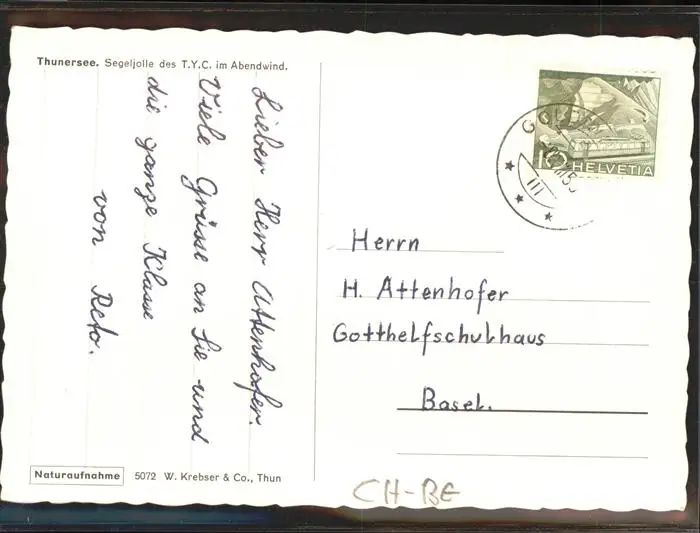 Thunersee. Segeljolle des T.Y.C. im Abendwind.
Lieber Herr Attenhofer.
Viele Grüsse an Sie und
die ganze Klasse
von Reto.
Naturaufnahme 5072 W. Krebser & Co., Thun
10 HELVETIA
Herrn
H. Attenhofer
Gotthelfschulhaus
Basel.
CH-BE